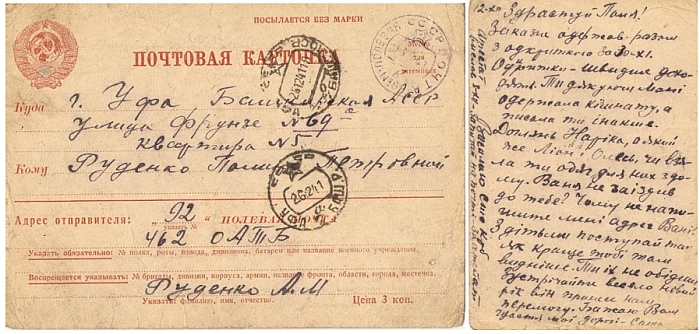 ПОСЫЛАЕТСЯ БЕЗ МАРКИ
ПОЧТОВАЯ КАРТОЧКА
Куда г. Уфа Башкирская АССР
улица Фрунзе №69
квартира №5
Кому Руденко Полине Петровной
Адрес отправителя: "92" ПОЛЕВАЯ ПОЧТА
указать №
462 ОАТБ
Указать обязательно: № полка, роты, взвода, дивизиона, батареи или название военного учреждения.
Воспрещается указывать: № бригады, дивизии, корпуса, армии, название фронта, области, города, местечка.
Руденко А.М
Указать фамилию, имя, отчество.
Цена 3 коп.
2-XII Здрастуй Поля!
одертов разом
з открыткою за 30-XI.
швидше дохо-
дять. Ти дякуючи мені
одержала кімнату, а
писала ти інакше.
же Люні? Олесь, чи взя-
ла ти одяг для них здо-
му. Ваня не заїздив
до тебе? Чому не напи-
шите мені адрес Вані?
З дітьми поступай та-
як краще тобі там
видніше. Ти їх не обіди
зустрічайте весело новий
рік він принесе нам
перемогу. Бажаю Вам
щастя мої дорогі